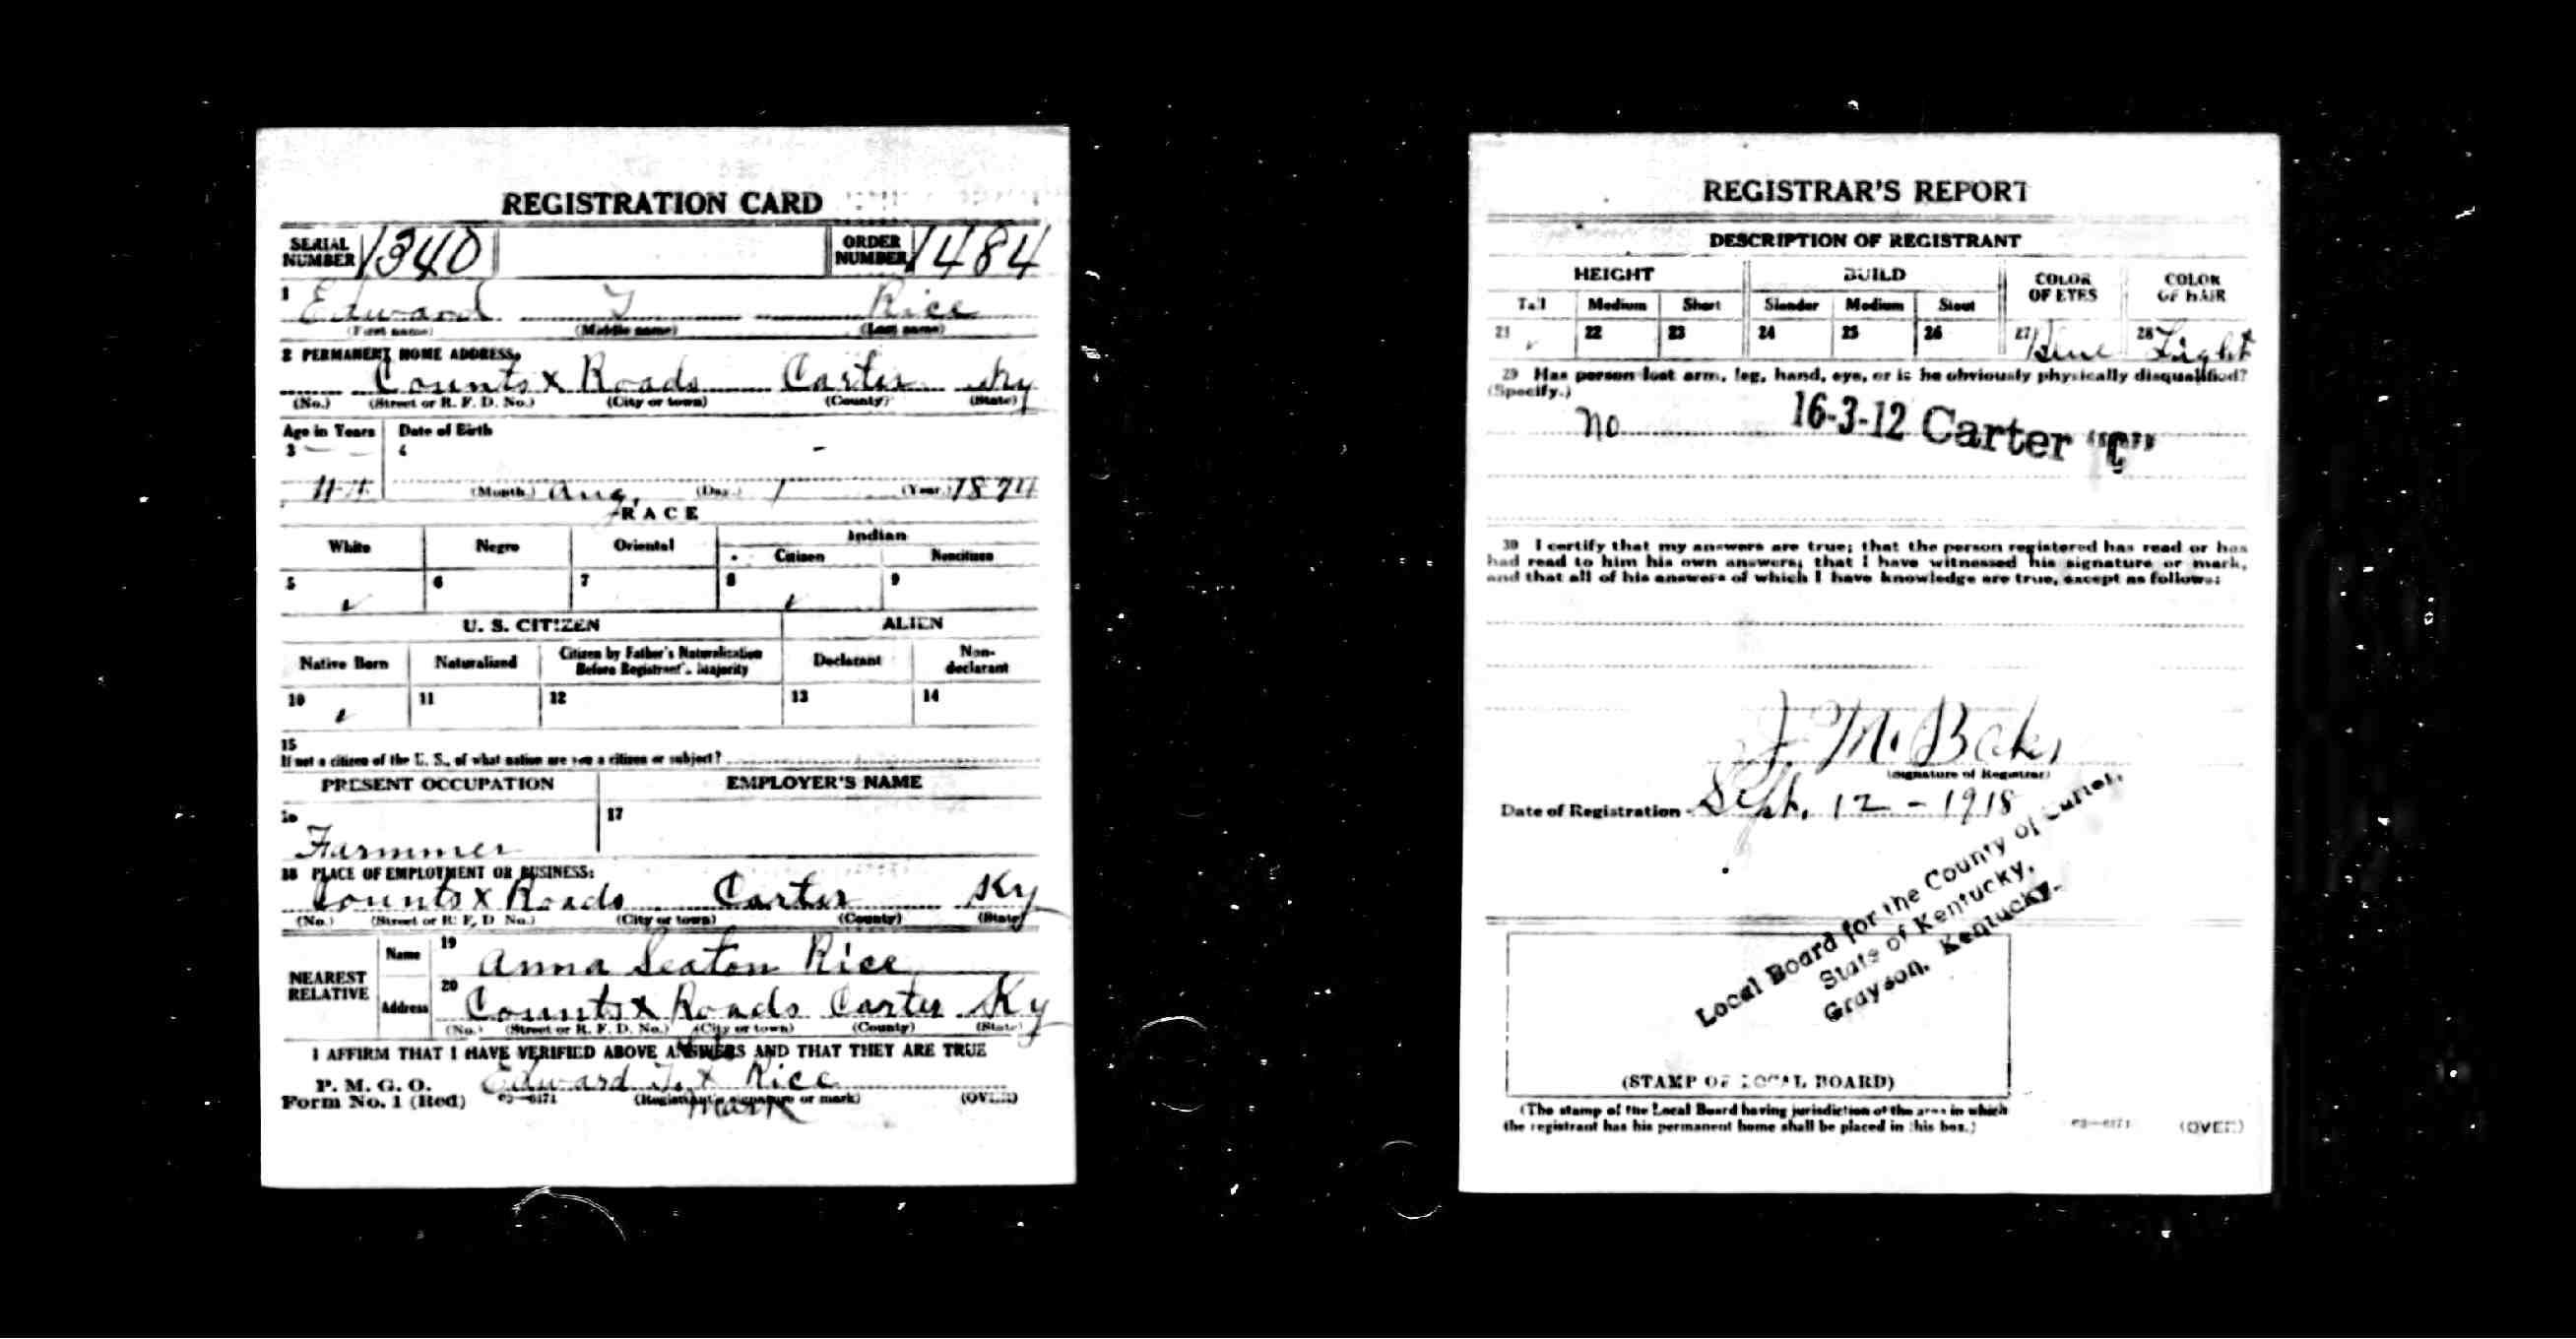 REGISTRATION CARD
SERIAL NUMBER 1340 ORDER NUMBER 1484
1 Edward T Rice
(First name) (Middle name) (Last name)
2 PERMANENT HOME ADDRESS:
Counts x Roads Carter Ky
(No.) (Street or R. F. D. No.) (City or town) (County) (State)
Age in Years Date of Birth
3 4
44 (Month.) Aug. (Day.) 1 (Year.) 1874
RACE
White Negro Oriental Indian
Citizen Noncitizen
5 ✓ 6 7 8 ✓ 9
U. S. CITIZEN ALIEN
Native Born Naturalized Citizen by Father's Naturalization Before Registrant's Majority Declarant Non-declarant
10 ✓ 11 12 13 14
15
If not a citizen of the U. S., of what nation are you a citizen or subject?
PRESENT OCCUPATION EMPLOYER'S NAME
16 17
Farmmer
18 PLACE OF EMPLOYMENT OR BUSINESS:
Counts x Roads Carter Ky
(No.) (Street or R. F. D. No.) (City or town) (County) (State)
NEAREST RELATIVE Name 19 Anna Seaton Rice
Address 20 Counts x Roads Carter Ky
(No.) (Street or R. F. D. No.) (City or town) (County) (State)
I AFFIRM THAT I HAVE VERIFIED ABOVE ANSWERS AND THAT THEY ARE TRUE
P. M. G. O.
Form No. 1 (Red) Edward T. x Rice
(Registrant's signature or mark) (OVER)
mark
REGISTRAR'S REPORT
DESCRIPTION OF REGISTRANT
HEIGHT BUILD COLOR OF EYES COLOR OF HAIR
Tall Medium Short Slender Medium Stout
21 ✓ 22 23 24 25 26 27 Blue 28 Light
29 Has person lost arm, leg, hand, eye, or is he obviously physically disqualified?
(Specify.)
no 16-3-12 Carter "C"
30 I certify that my answers are true; that the person registered has read or has
had read to him his own answers; that I have witnessed his signature or mark,
and that all of his answers of which I have knowledge are true, except as follows:
J. M. Baker
(Signature of Registrar)
Date of Registration Sept. 12 - 1918
Local Board for the County of Carter,
State of Kentucky,
Grayson, Kentucky.
(STAMP OF LOCAL BOARD)
(The stamp of the Local Board having jurisdiction of the area in which
the registrant has his permanent home shall be placed in this box.)
(OVER)